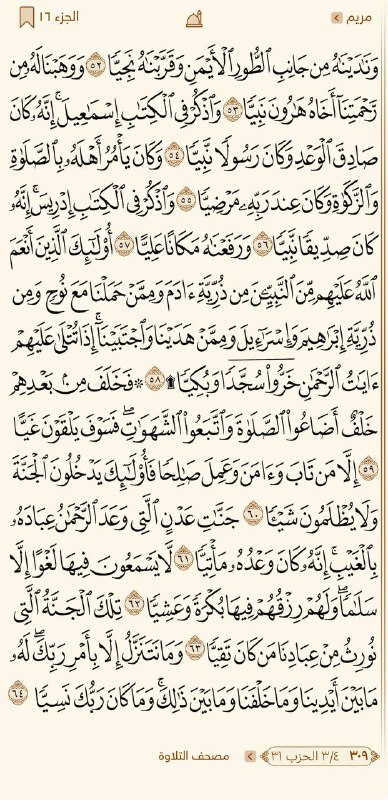 مريم
الجزء ١٦
وَنَٰدَيۡنَٰهُ مِن جَانِبِ ٱلطُّورِ ٱلۡأَيۡمَنِ وَقَرَّبۡنَٰهُ نَجِيّٗا ٥٢ وَوَهَبۡنَا لَهُۥ مِن
رَّحۡمَتِنَآ أَخَاهُ هَٰرُونَ نَبِيّٗا ٥٣ وَٱذۡكُرۡ فِي ٱلۡكِتَٰبِ إِسۡمَٰعِيلَۚ إِنَّهُۥ كَانَ
صَادِقَ ٱلۡوَعۡدِ وَكَانَ رَسُولٗا نَّبِيّٗا ٥٤ وَكَانَ يَأۡمُرُ أَهۡلَهُۥ بِٱلصَّلَوٰةِ
وَٱلزَّكَوٰةِ وَكَانَ عِندَ رَبِّهِۦ مَرۡضِيّٗا ٥٥ وَٱذۡكُرۡ فِي ٱلۡكِتَٰبِ إِدۡرِيسَۚ إِنَّهُۥ
كَانَ صِدِّيقٗا نَّبِيّٗا ٥٦ وَرَفَعۡنَٰهُ مَكَانًا عَلِيًّا ٥٧ أُوْلَٰٓئِكَ ٱلَّذِينَ أَنۡعَمَ
ٱللَّهُ عَلَيۡهِم مِّنَ ٱلنَّبِيِّـۧنَ مِن ذُرِّيَّةِ ءَادَمَ وَمِمَّنۡ حَمَلۡنَا مَعَ نُوحٖ وَمِن
ذُرِّيَّةِ إِبۡرَٰهِيمَ وَإِسۡرَٰٓءِيلَ وَمِمَّنۡ هَدَيۡنَا وَٱجۡتَبَيۡنَآۚ إِذَا تُتۡلَىٰ عَلَيۡهِمۡ
ءَايَٰتُ ٱلرَّحۡمَٰنِ خَرُّواْۤ سُجَّدٗاۤ وَبُكِيّٗا۩ ٥٨ ۞ فَخَلَفَ مِنۢ بَعۡدِهِمۡ
خَلۡفٌ أَضَاعُواْ ٱلصَّلَوٰةَ وَٱتَّبَعُواْ ٱلشَّهَوَٰتِۖ فَسَوۡفَ يَلۡقَوۡنَ غَيًّا
٥٩ إِلَّا مَن تَابَ وَءَامَنَ وَعَمِلَ صَٰلِحٗا فَأُوْلَٰٓئِكَ يَدۡخُلُونَ ٱلۡجَنَّةَ
وَلَا يُظۡلَمُونَ شَيۡـٔٗا ٦٠ جَنَّٰتِ عَدۡنٍ ٱلَّتِي وَعَدَ ٱلرَّحۡمَٰنُ عِبَادَهُۥ
بِٱلۡغَيۡبِۚ إِنَّهُۥ كَانَ وَعۡدُهُۥ مَأۡتِيّٗا ٦١ لَّا يَسۡمَعُونَ فِيهَا لَغۡوًا إِلَّا
سَلَٰمٗاۖ وَلَهُمۡ رِزۡقُهُمۡ فِيهَا بُكۡرَةٗ وَعَشِيّٗا ٦٢ تِلۡكَ ٱلۡجَنَّةُ ٱلَّتِي
نُورِثُ مِنۡ عِبَادِنَا مَن كَانَ تَقِيّٗا ٦٣ وَمَا نَتَنَزَّلُ إِلَّا بِأَمۡرِ رَبِّكَۖ لَهُۥ
مَا بَيۡنَ أَيۡدِينَا وَمَا خَلۡفَنَا وَمَا بَيۡنَ ذَٰلِكَۚ وَمَا كَانَ رَبُّكَ نَسِيّٗا ٦٤
٣٠٩
٣/٤ الحزب ٣١
مصحف التلاوة